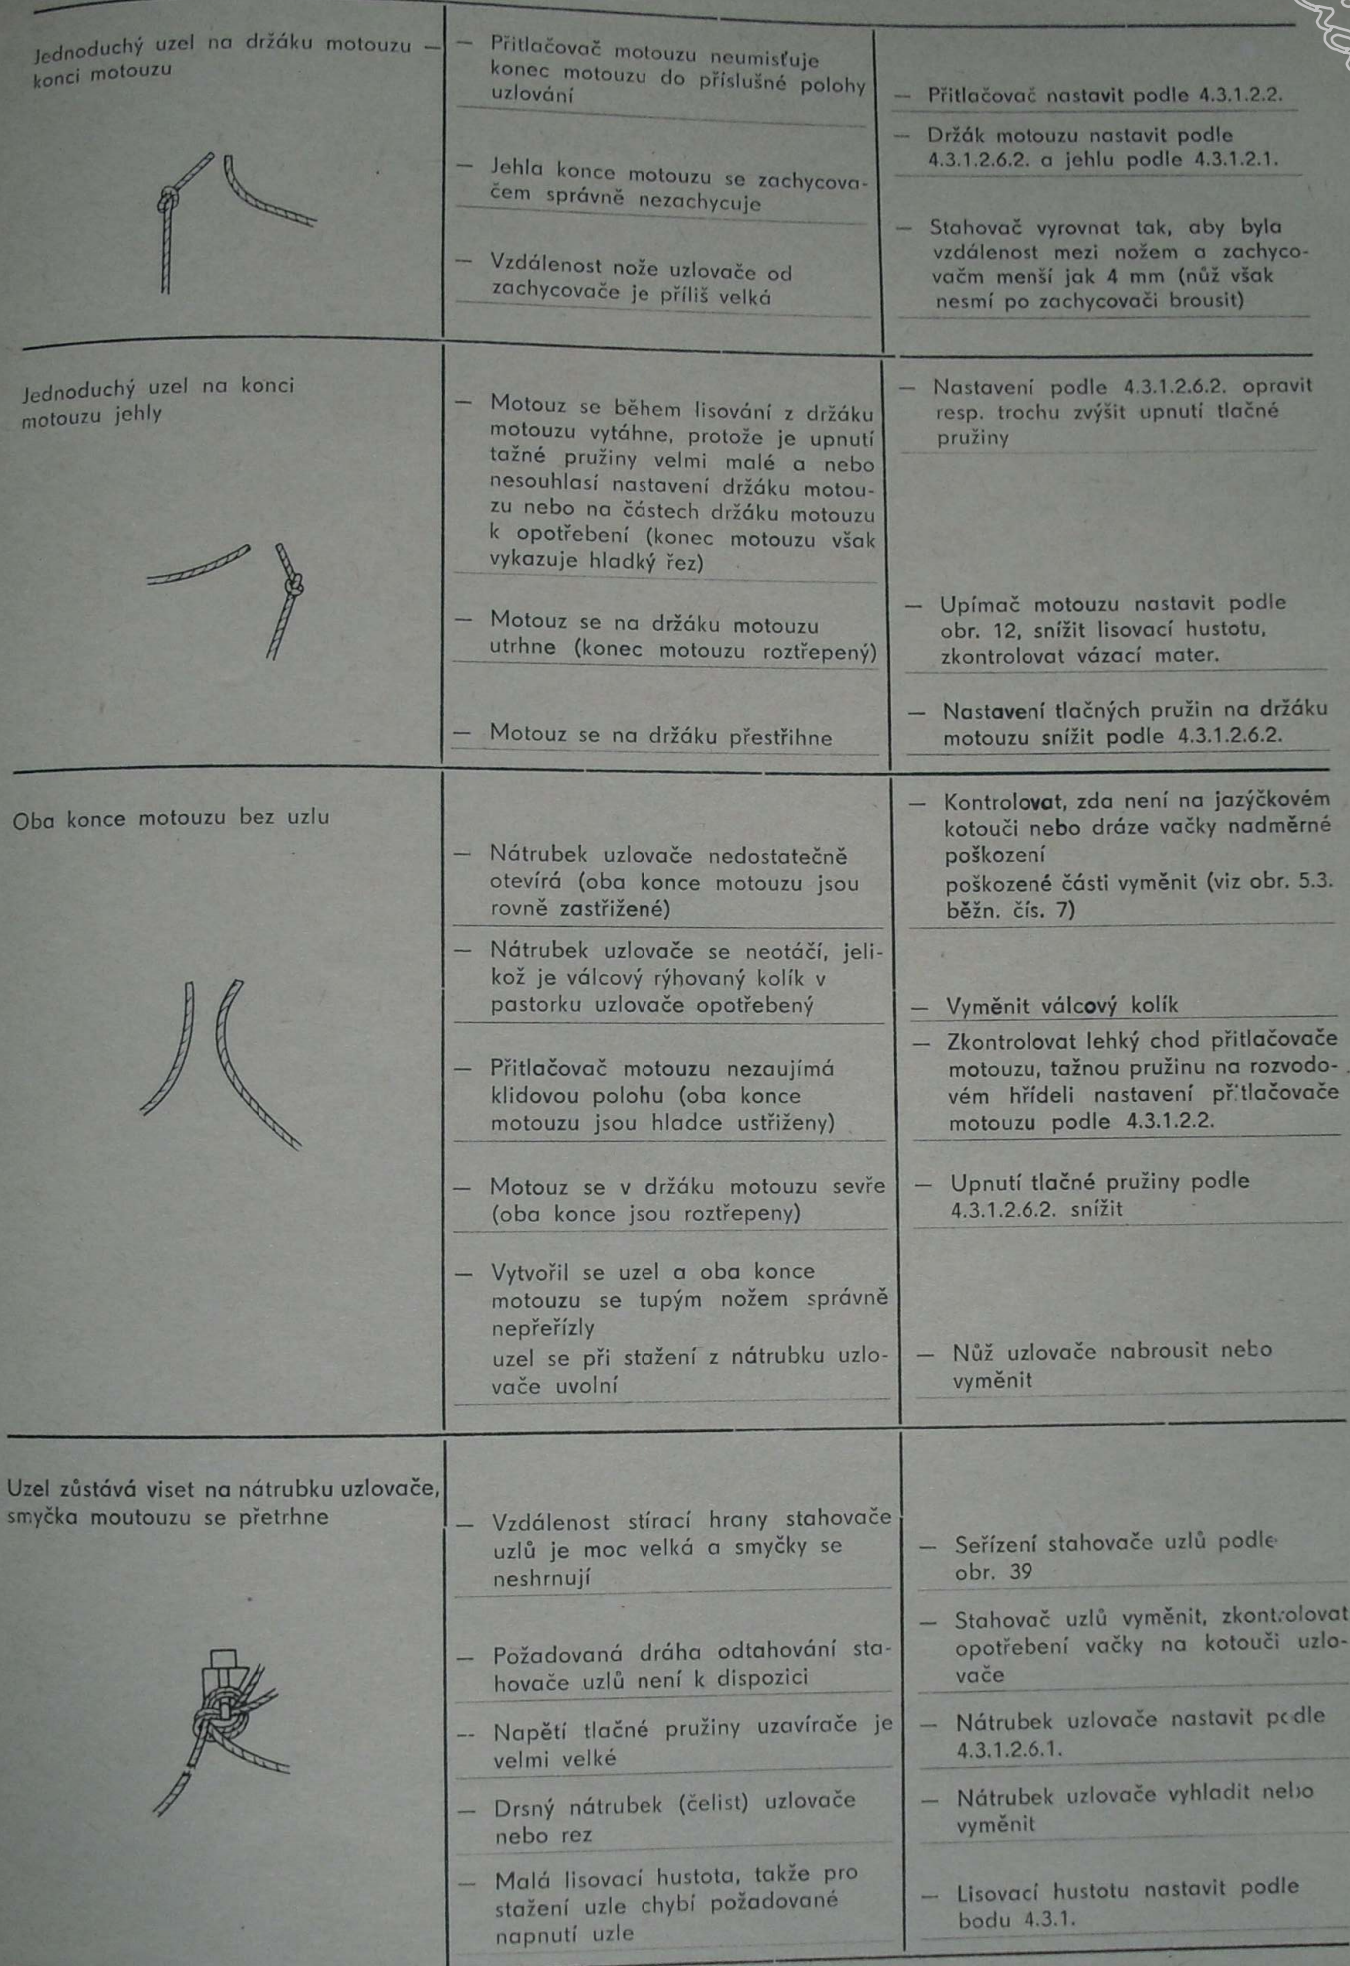 Jednoduchý uzel na držáku motouzu —
konci motouzu
— Přitlačovač motouzu neumisťuje
konec motouzu do příslušné polohy
uzlování
— Přitlačovač nastavit podle 4.3.1.2.2.
— Jehla konce motouzu se zachycova-
čem správně nezachycuje
— Držák motouzu nastavit podle
4.3.1.2.6.2. a jehlu podle 4.3.1.2.1.
— Vzdálenost nože uzlovače od
zachycovače je příliš velká
— Stahovač vyrovnat tak, aby byla
vzdálenost mezi nožem a zachyco-
vačm menší jak 4 mm (nůž však
nesmí po zachycovači brousit)
Jednoduchý uzel na konci
motouzu jehly
— Motouz se během lisování z držáku
motouzu vytáhne, protože je upnutí
tažné pružiny velmi malé a nebo
nesouhlasí nastavení držáku motou-
zu nebo na částech držáku motouzu
k opotřebení (konec motouzu však
vykazuje hladký řez)
— Nastavení podle 4.3.1.2.6.2. opravit
resp. trochu zvýšit upnutí tlačné
pružiny
— Motouz se na držáku motouzu
utrhne (konec motouzu roztřepený)
— Upímač motouzu nastavit podle
obr. 12, snížit lisovací hustotu,
zkontrolovat vázací mater.
— Motouz se na držáku přestřihne
— Nastavení tlačných pružin na držáku
motouzu snížit podle 4.3.1.2.6.2.
Oba konce motouzu bez uzlu
— Nátrubek uzlovače nedostatečně
otevírá (oba konce motouzu jsou
rovně zastřižené)
— Kontrolovat, zda není na jazýčkovém
kotouči nebo dráze vačky nadměrné
poškození
poškozené části vyměnit (viz obr. 5.3.
běžn. čís. 7)
— Nátrubek uzlovače se neotáčí, jeli-
kož je válcový rýhovaný kolík v
pastorku uzlovače opotřebený
— Vyměnit válcový kolík
— Přitlačovač motouzu nezaujímá
klidovou polohu (oba konce
motouzu jsou hladce ustřiženy)
— Zkontrolovat lehký chod přitlačovače
motouzu, tažnou pružinu na rozvodo-
vém hřídeli nastavení přitlačovače
motouzu podle 4.3.1.2.2.
— Motouz se v držáku motouzu sevře
(oba konce jsou roztřepeny)
— Upnutí tlačné pružiny podle
4.3.1.2.6.2. snížit
— Vytvořil se uzel a oba konce
motouzu se tupým nožem správně
nepřeřízly
uzel se při stažení z nátrubku uzlo-
vače uvolní
— Nůž uzlovače nabrousit nebo
vyměnit
Uzel zůstává viset na nátrubku uzlovače,
smyčka moutouzu se přetrhne
— Vzdálenost stírací hrany stahovače
uzlů je moc velká a smyčky se
neshrnují
— Seřízení stahovače uzlů podle
obr. 39
— Požadovaná dráha odtahování sta-
hovače uzlů není k dispozici
— Stahovač uzlů vyměnit, zkontrolovat
opotřebení vačky na kotouči uzlo-
vače
— Napětí tlačné pružiny uzavírače je
velmi velké
— Nátrubek uzlovače nastavit podle
4.3.1.2.6.1.
— Drsný nátrubek (čelist) uzlovače
nebo rez
— Nátrubek uzlovače vyhladit nebo
vyměnit
— Malá lisovací hustota, takže pro
stažení uzle chybí požadované
napnutí uzle
— Lisovací hustotu nastavit podle
bodu 4.3.1.